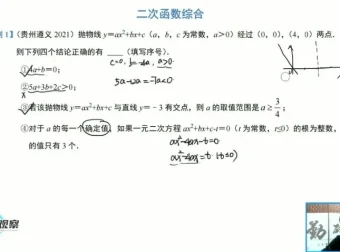 二次函数综合
例1】(贵州遵义 2021) 抛物线 y=ax²+bx+c (a, b, c 为常数, a>0) 经过 (0, 0), (4, 0) 两点.
则下列四个结论正确的有 ____ (填写序号).
c=0. b=-4a. a>0
①4a+b=0;
5a-12a=-7a<0
②5a+3b+2c>0;
③若该抛物线 y=ax²+bx+c 与直线 y=-3 有交点, 则 a 的取值范围是 a≥3/4;
④对于 a 的每一个确定值, 如果一元二次方程 ax²+bx+c-t=0 (t 为常数, t≤0) 的根为整数,
的值只有 3 个.
ax²-4ax-t=0
ax²-4ax=t (t≤0)
观察